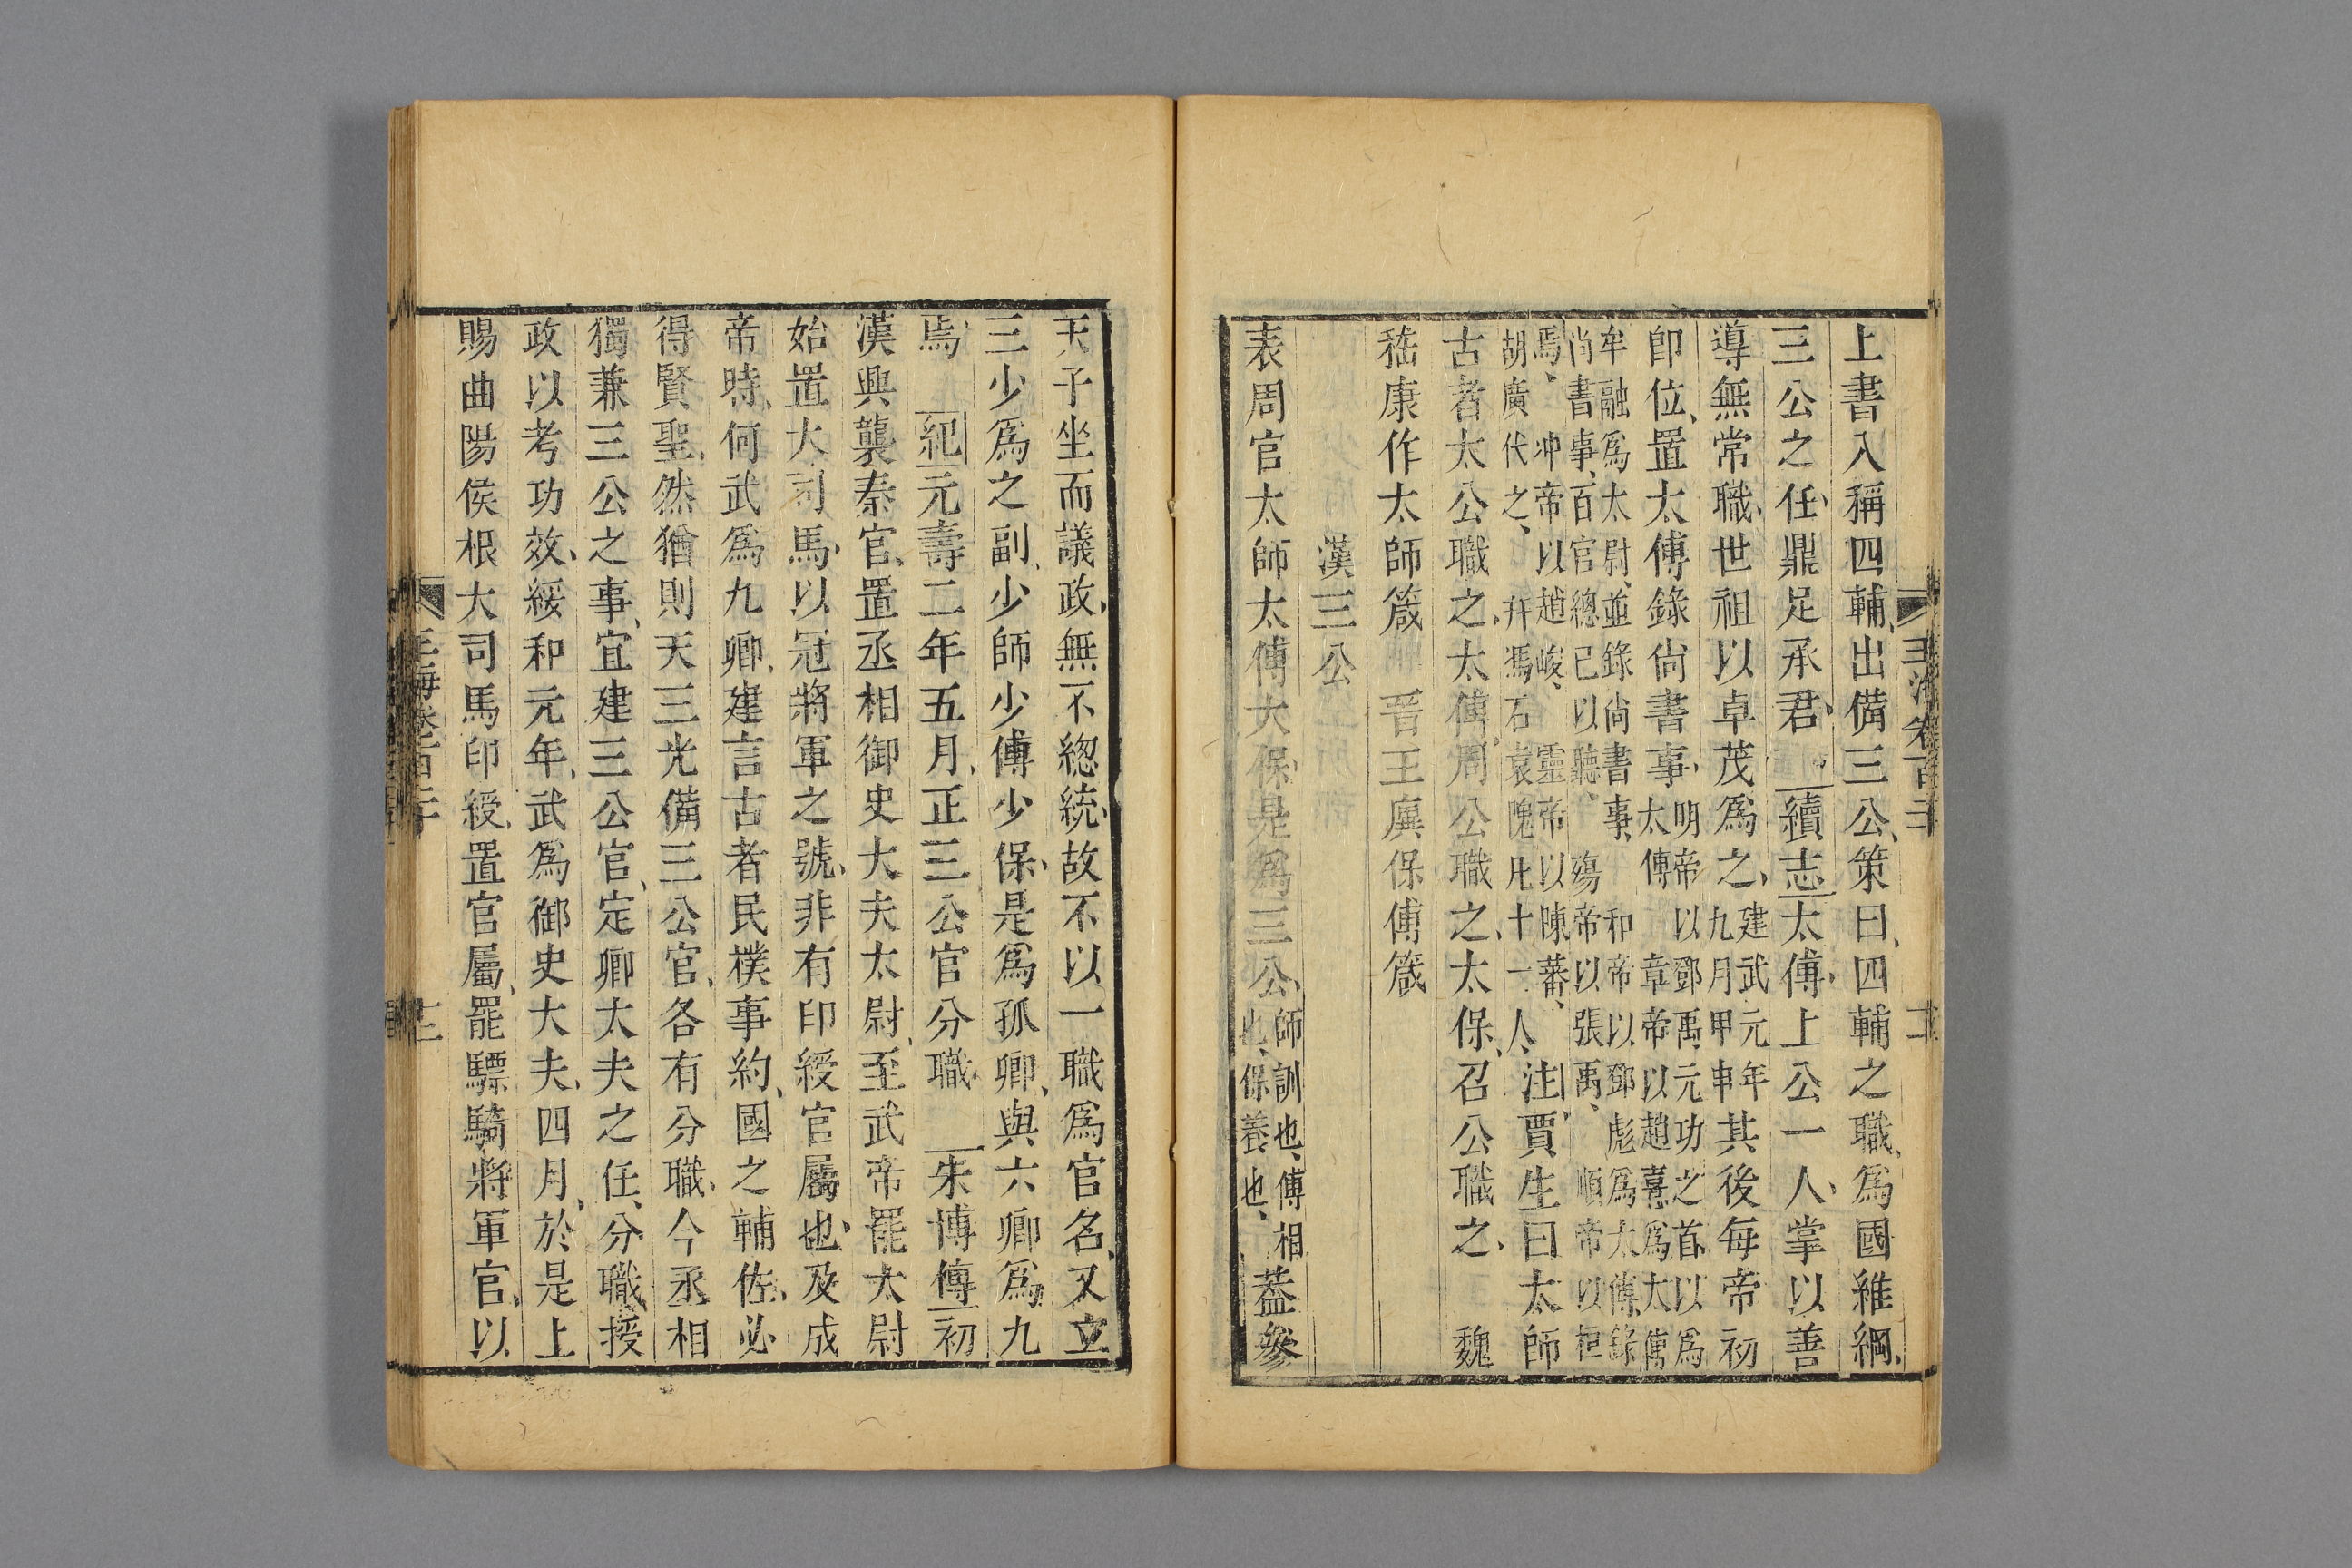 上書入稱四輔出備三公策曰四輔之職爲國維綱
三公之任鼎足承君續志太傅上公一人掌以善
導無常職世祖以卓茂爲之建武元年九月甲申其後每帝初
卽位置太傅錄尙書事明帝以鄧禹元功之首以爲太傅章帝以趙憙爲太傅
牟融爲太尉並錄尙書事和帝以鄧彪爲太傅錄尙書事百官總已以聽殤帝以張禹順帝以桓
焉冲帝以趙峻靈帝以陳蕃胡廣代之并馮石袁隗凡十一人注賈生曰太師
古者太公職之太傅周公職之太保召公職之 魏
嵇康作太師箴 晉王廙保傅箴
漢三公
表周官太師太傅太保是爲三公師訓也傅相也保養也葢參
天子坐而議政無不緫統故不以一職爲官名又立
三少爲之副少師少傅少保是爲孤卿與六卿爲九
焉 紀元壽二年五月正三公官分職 朱博傳初
漢興襲秦官置丞相御史大夫太尉至武帝罷太尉
始置大司馬以冠將軍之號非有印綬官屬也及成
帝時何武爲九卿建言古者民樸事約國之輔佐必
得賢聖然猶則天三光備三公官各有分職今丞相
獨兼三公之事宜建三公官定卿大夫之任分職授
政以考功效綏和元年武爲御史大夫四月於是上
賜曲陽侯根大司馬印綬置官屬罷驃騎將軍官以